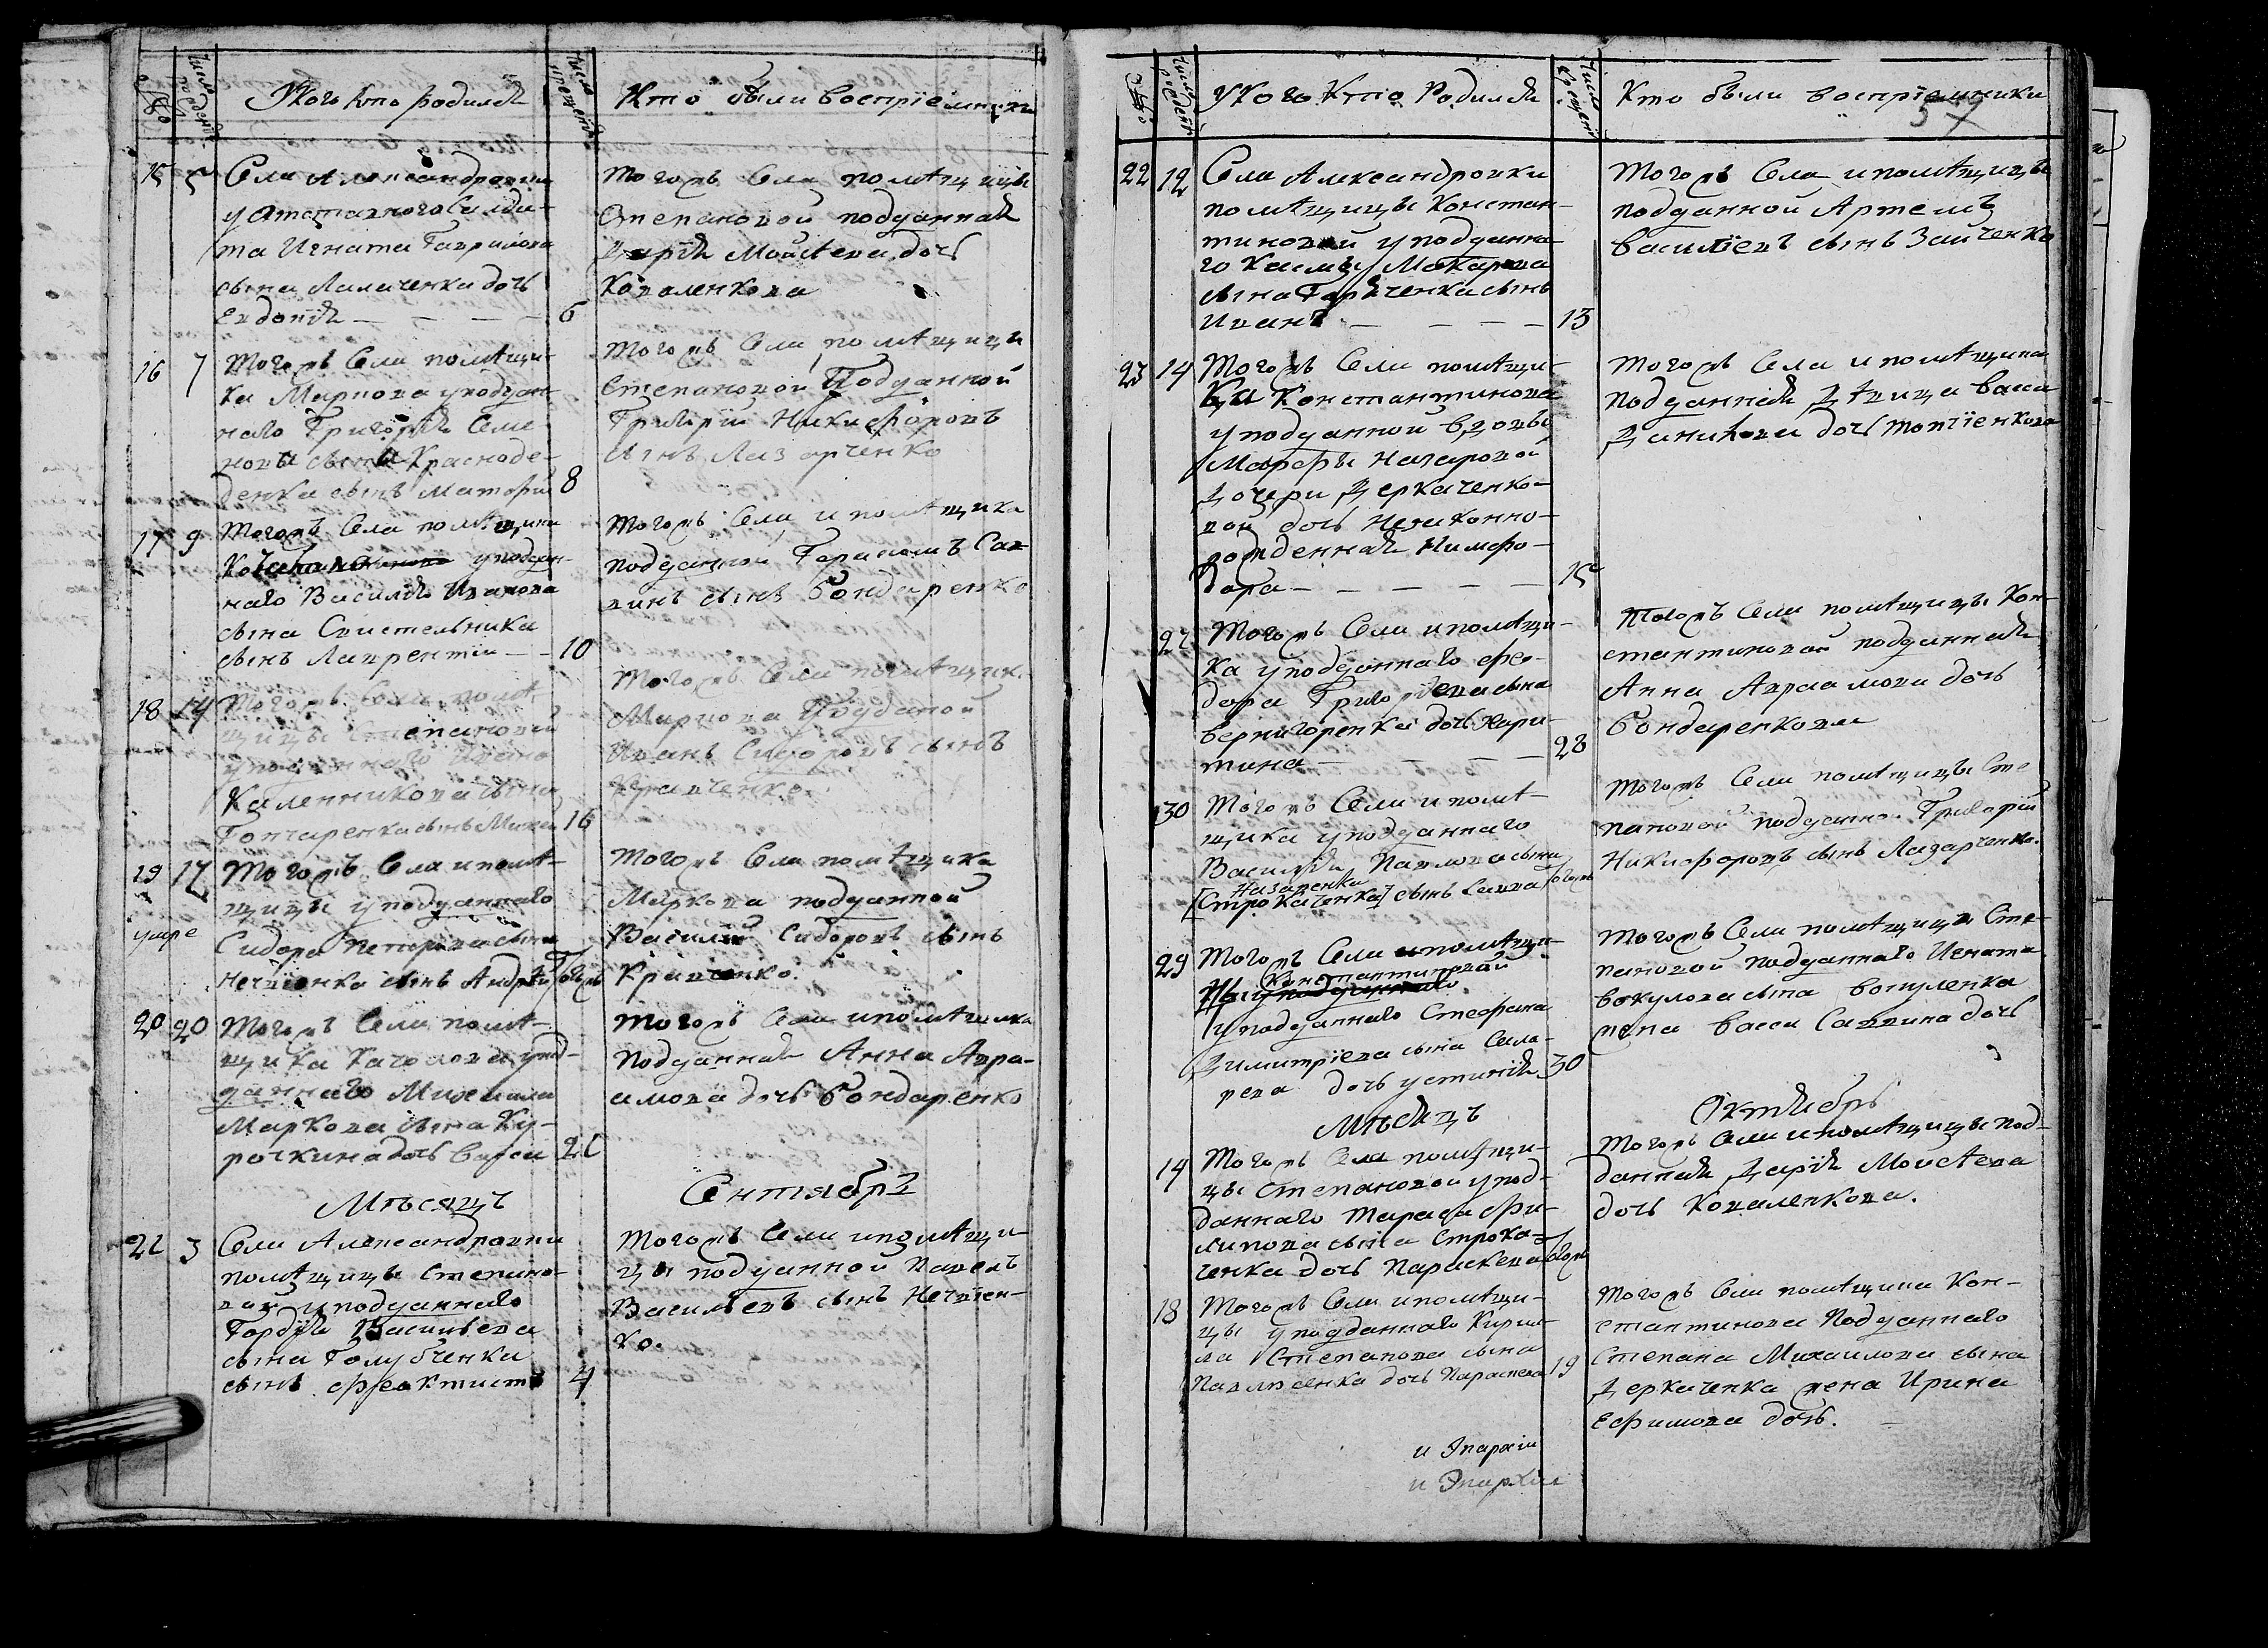 Число рожденія
У кого кто родился
Число крещенія
Кто были воспріемники
15 5 Села Александровки
у отставного салда-
та Игната Гаврилова
сына Лалаченка дочь
Евдокія — — — — 6
Тогожъ Села помѣщицы
Степановой подданная
Дарія Моисѣева дочь
Коваленкова
16 7 Тогожъ Села помѣщи-
ка Маркова у поддан-
наго Григорія Семе-
нова сына Красноде-
денка сынъ 8
Тогожъ Села помѣщицы
Степановой Подданной
Григорій Никифоровъ
сынъ Лазарченко
17 9 Тогожъ Села помѣщика
у поддан-
наго Василія Иванова
сына Свистельника
сынъ Лаврентій — - 10
Тогожъ Села и помѣщика
подданной Герасимъ Сав-
винъ сынъ Бондаренко
18 14 Тогожъ Села помѣ-
щицы Степановой
у подданнаго Ивана
Каленникова сына
Гончаренка сынъ 16
Тогожъ Села помѣщик.
Маркова Подданой
Иванъ Сидоровъ сынъ
Кравченко.
19 17 Тогожъ Села и помѣ-
щицы у подданнаго
умре Сидора Петрова сына
Нечвіенка сынъ Андрей тогожъ
Тогожъ Села помѣщика
Маркова подданной
Василій Сидоровъ сынъ
Кравченко.
20 20 Тогожъ Села помѣ-
щика Качалова у под-
даннаго Михаила
Маркова сына Ку-
рочкина дочь Васса 21
Тогожъ Села и помѣщика
подданная Анна Авра-
амова дочь Бондаренко
Мѣсяцъ Сентябрь
21 3 Села Александровки
помѣщицы Степано-
вой у подданнаго
Гордѣя Васильева
сына Голубченка
сынъ Феоктистъ 4
Тогожъ Села и помѣщи-
цы подданной Павелъ
Васильевъ сынъ Нечвіен-
ко.
Число рожденія
У кого кто Родился
Число крещенія
Кто были воспріемники
57
22 12 Села Александровки
помѣщицы Констан-
тиновой у подданна-
го Касмы Макарова
сына Горбченка сынъ
Иванъ — — — — 13
Тогожъ Села и помѣщицы
подданной Артемъ
Василіевъ сынъ Заиченко
23 14 Тогожъ Села помѣщи-
ка Константинова
у подданной вдовы
Марфы Назаровой
дочери Деркаченко-
вой дочь незаконно-
рожденная Нимфо-
дора — — — — 15
Тогожъ Села и помѣщика
подданная дѣвица Васса
Данилова дочь
27 Тогожъ Села и помѣщи-
ка у подданнаго Фео-
дора Григоріева сына
Вернигоренка дочь Хари-
тина — — — — 28
Тогожъ Села помѣщицы Кон-
стантиновой подданная
Анна Авраамова дочь
Бондаренкова
30 Тогожъ Села и помѣ-
щика у подданнаго
Василія Павлова сына
Назаренка
[Строкаченка] сынъ Савва тогожъ
Тогожъ Села помѣщицы Сте-
пановой подданно. Григорій
Никифоровъ сынъ Лазарченко.
29 Тогожъ Села и помѣщи-
Константиновой
цы у подданнаго
у подданнаго Стефана
Димитріева сына Сала-
рева дочь Устинія 30
Тогожъ Села помѣщицы Сте-
пановой подданнаго Игната
Вокулова сына Вокуленка
жена Васса Саввина дочь
Мѣсяцъ Октябрь
14 Тогожъ Села помѣщи-
цы Степановой у под-
даннаго Тараса Фи-
липова сына Строка-
ченка дочь Параскева тогожъ
Тогожъ Села и помѣщицы под-
данная Дарія Моисѣева
дочь Коваленкова.
18 Тогожъ Села и помѣщи-
цы у подданнаго Кирил-
ла Степанова сына
Павлюсенка дочь Параскева 19
Тогожъ Села помѣщика Кон-
стантинова Подданнаго
Степана Михаилова сына
Деркаченка жена Ирина
Ефимова дочь.
и Эпархіи
и Эпархіи